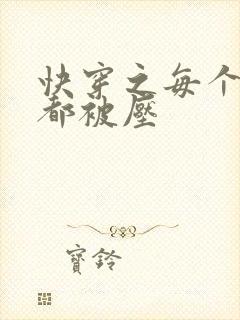 快穿之每个
都被壓
寳鈴